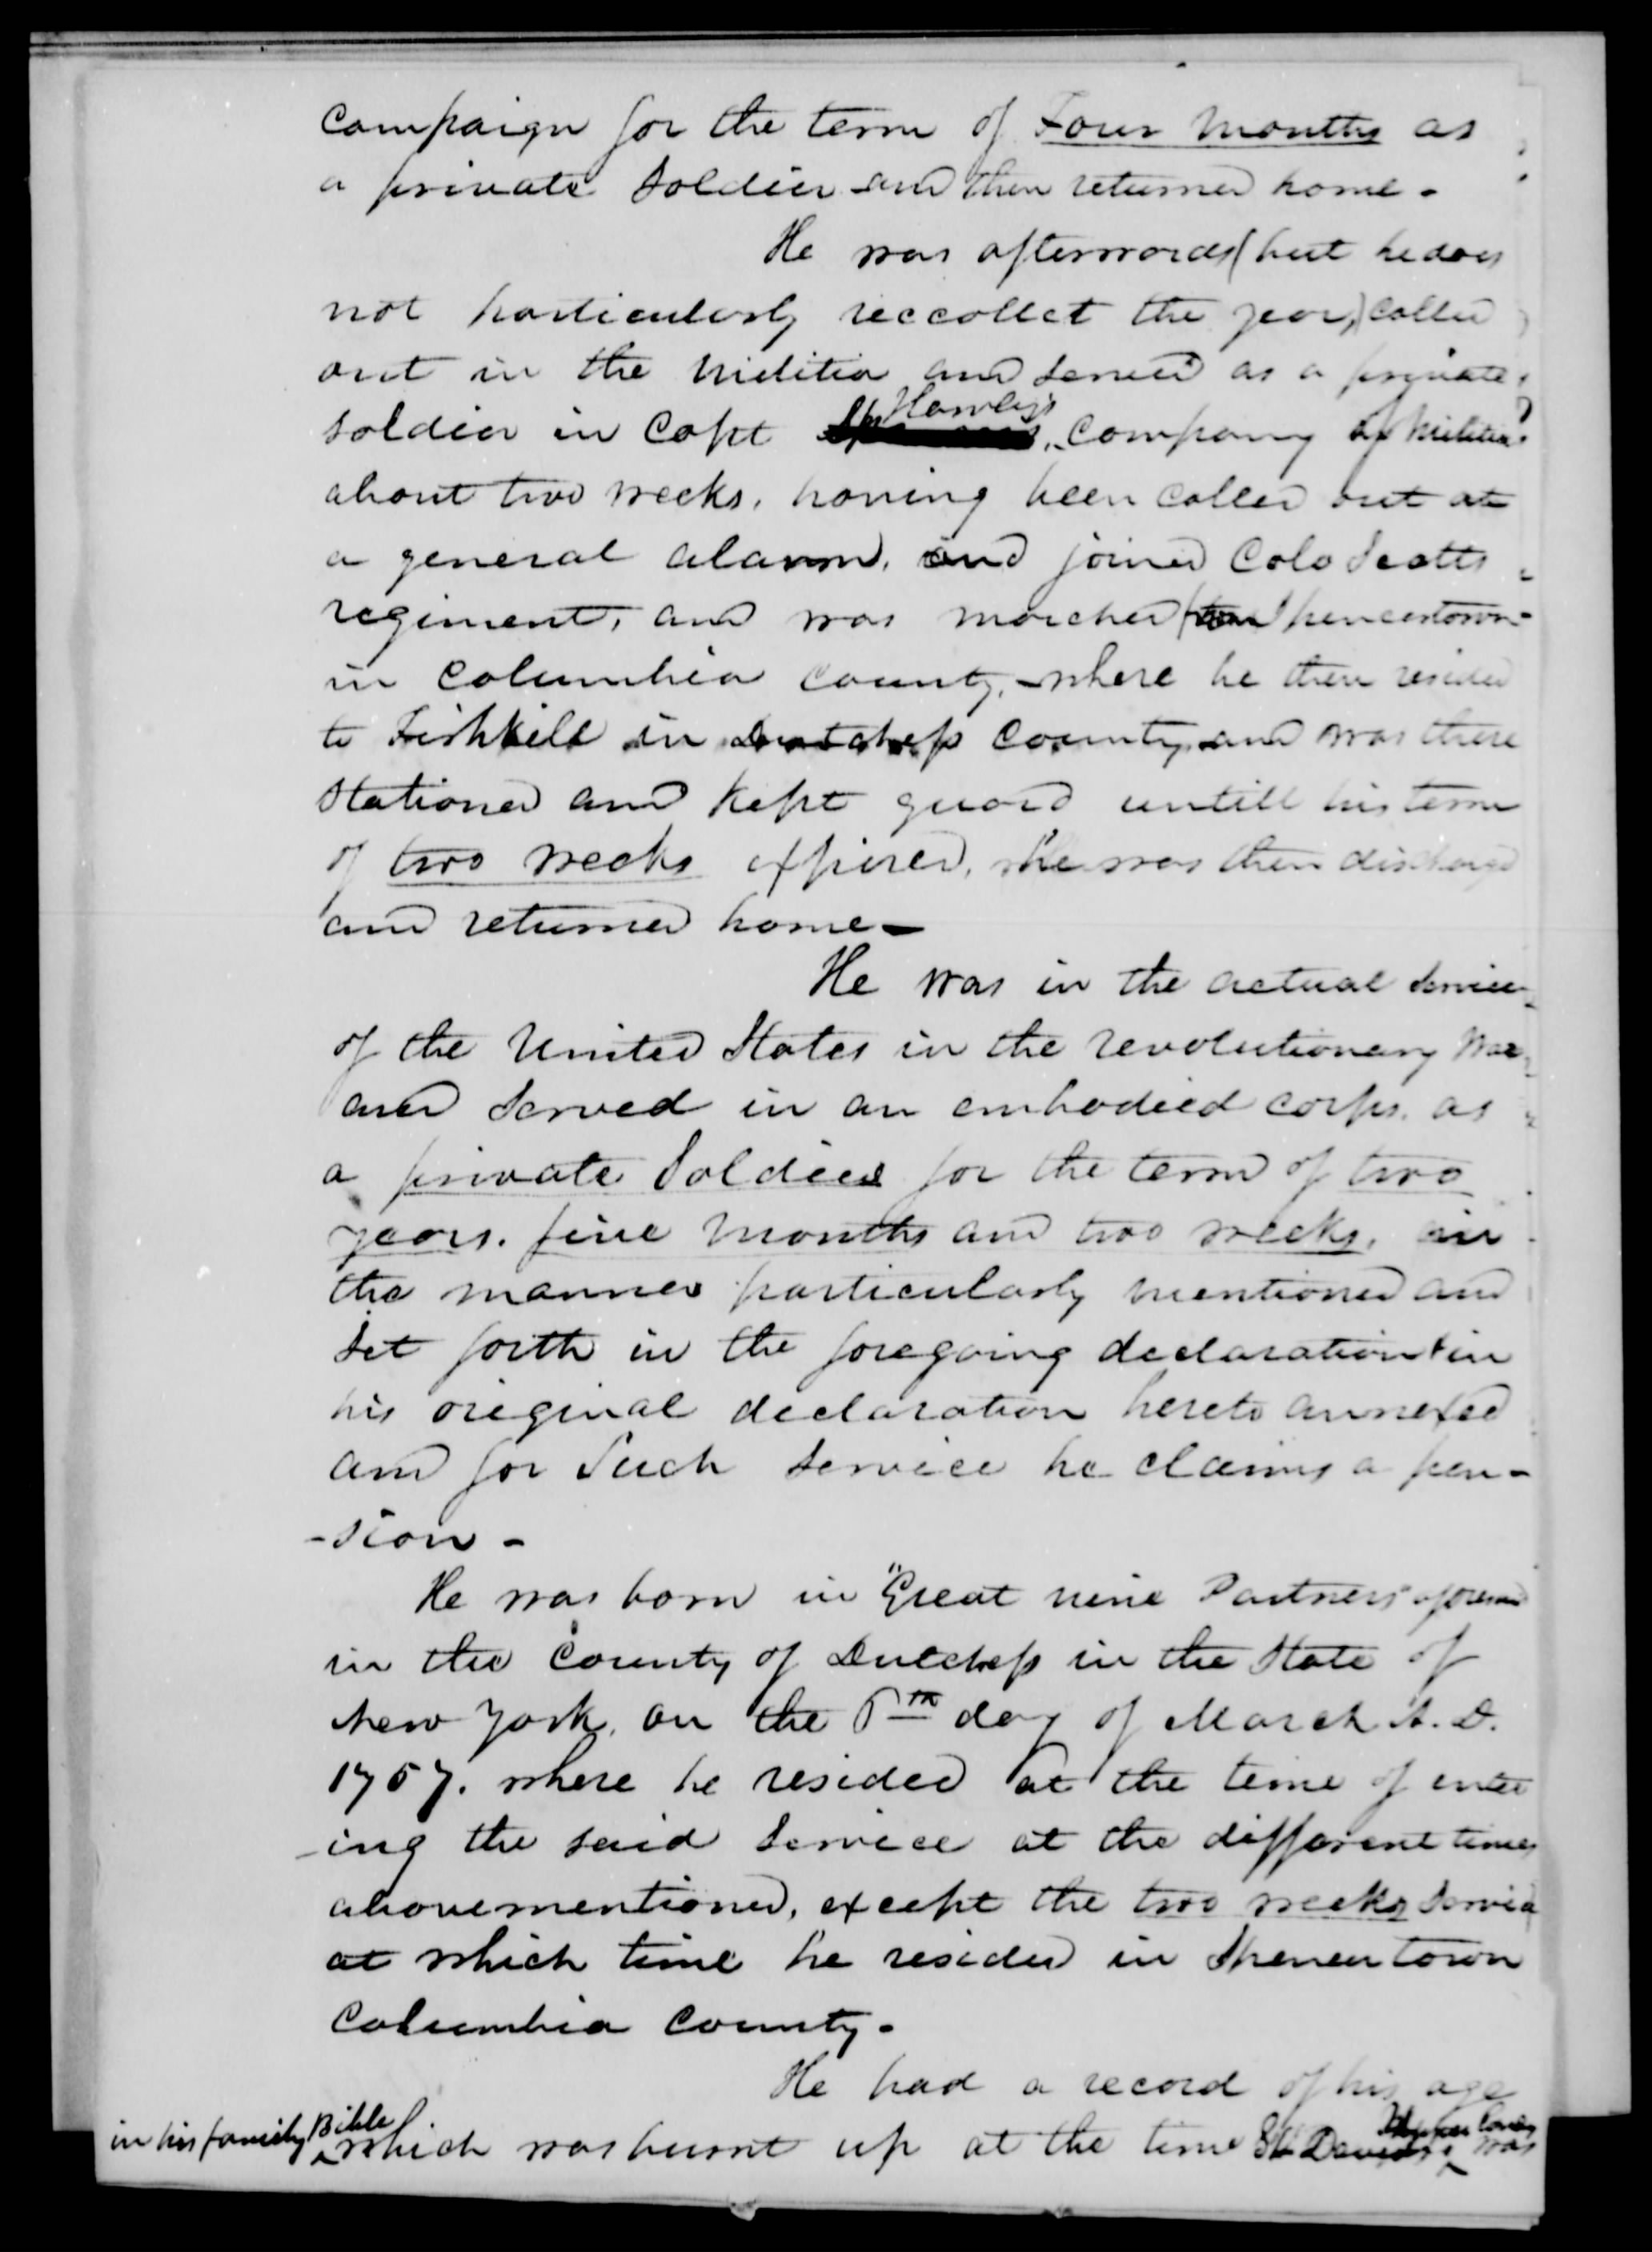 Campaign for the term of Four Months as
a private Soldier and then returned home -
He was afterwards (but he does
not particularly reccollect the year) called
out in the Militia and served as a private
soldier in Capt Hawleys Company of Militia
about two weeks, having been called out at
a general alarm, and joined Colo Scotts
regiment, and was marched from Spencertown
in Columbia County, where he then resided
to Fishkill in Dutchess County and was there
stationed and kept guard untill his term
of two weeks expired, he was then discharged
and returned home -
He was in the actual service
of the United States in the revolutionary War
and served in an embodied corps as
a private Soldier for the term of two
years, five Months and two weeks, in
the manner particularly mentioned and
set forth in the foregoing declaration & in
his original declaration hereto annexed
and for such service he claims a pen-
-sion -
He was born in "Great nine Partners" aforesaid
in the County of Dutchess in the State of
New York, on the 6th day of March A. D.
1757. where he resided at the time of enter
-ing the said service at the different times
abovementioned, except the two weeks service
at which time he resided in Spencertown
Columbia County -
He had a record of his age
in his family Bible which was burnt up at the time St Davids was